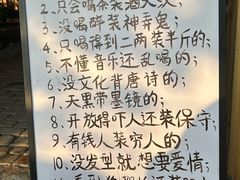 2、只会喝茶装酒
3、没喝醉装神弄鬼;
4、只喝得到二两装半斤的;
5、不懂音乐还乱喝的;
6、没文化背唐诗的;
7、天黑带墨镜的;
8、开放得吓人还装保守;
9、有钱人装穷人的;
10、没发型就想要爱情;